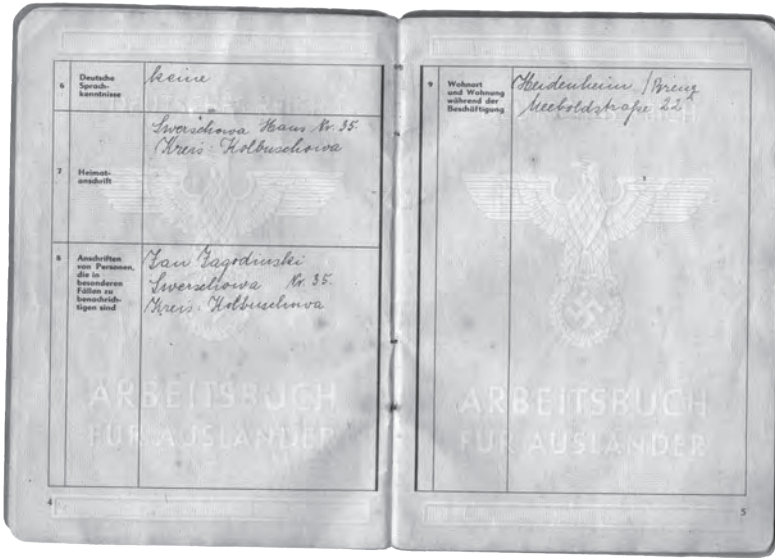 6 Deutsche
Sprach-
kenntnisse
keine
7 Heimat-
anschrift
Swerschowa Haus Nr. 35.
Kreis: Kolbuschowa
8 Anschriften
von Personen,
die in
besonderen
Fällen zu
benachrich-
tigen sind
Jan Jagodinski
Swerschowa Nr. 35.
Kreis: Kolbuschowa
ARBEITSBUCH
FÜR AUSLÄNDER
4
9 Wohnort
und Wohnung
während der
Beschäftigung
Heidenheim / Brenz
Meeboldstraße 22
ARBEITSBUCH
FÜR AUSLÄNDER
5